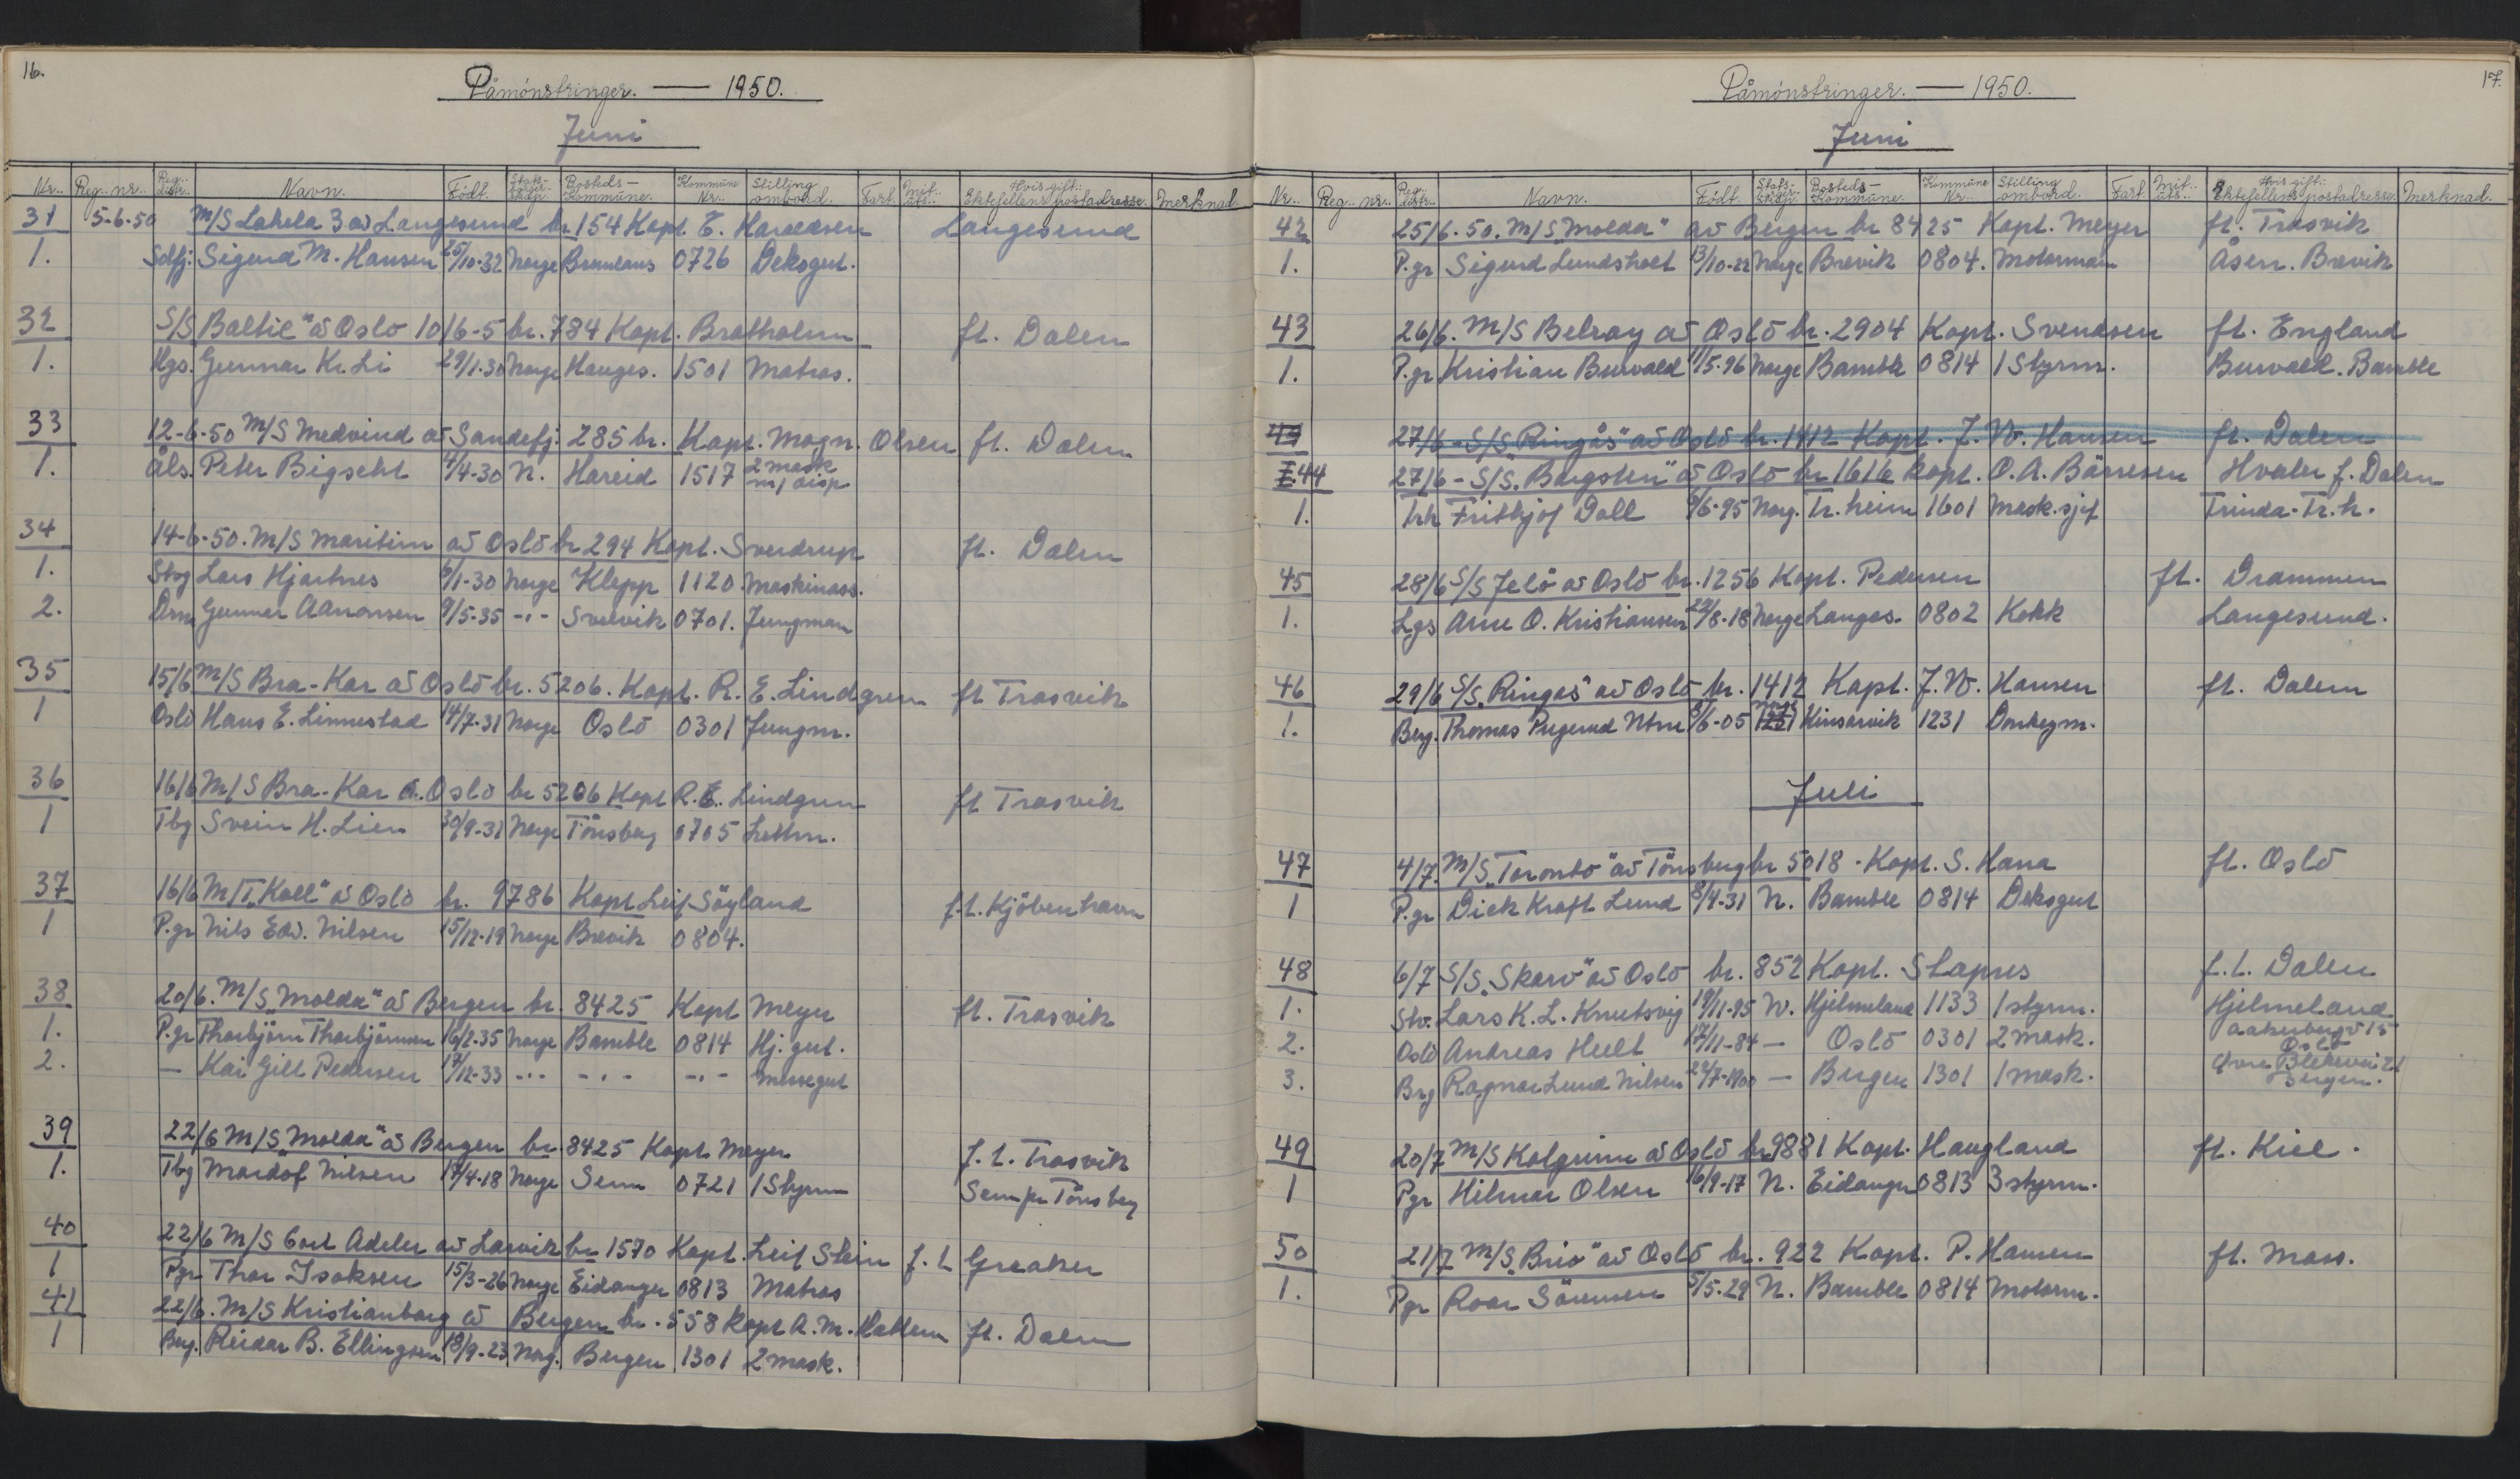 16.
Påmönstringer. — 1950.
Juni
Nr.. Reg.. nr.. Reg.. distr.. Navn. Födt. Stats-borger-skap. Bosteds-Kommune. Kommune Nr.. Stilling ombord. Fart. Mit.. uts.. Hvis gift:: Ektefellens postadresse. Merknad.
31 5-6-50 M/S Lakela 3 av Langesund br 154 Kapt. E. Langesund
1. Sdfj: Sigurd M. Hansen 25/10-32 Norge 0726 Deksgut.
32 S/S Baltic" av Oslo 10/6-5 br. 784 Kapt. Bratholm ft. Dalen
1. Hgs. Gunnar Kr. Li 29/1-30 Norge Hauges. 1501 Matros.
33 12-6-50 M/S Medvind av Sandefj. 285 br. Kapt. Magn. Olsen ft. Dalen
1. Åls. Peter Bigseht 4/4-30 N. Hareid 1517 2 mask m/ disp
34 14-6-50. M/S Maritim av Oslo br 294 Kapt. Sverdrup ft. Dalen
1. Stvg Lars Hjartnes 6/1-30 Norge Klepp 1120 Maskinass.
2. Drm Gunnar Aanonsen 9/5-35 -"- Svelvik 0701. Jungman
35 15/6 M/S Bra-Kar av Oslo br. 5206. Kapt. R. E. Lindgren ft Trosvik
1 Oslo Hans E. Linnestad 14/7-31 Norge Oslo 0301 Jungm.
36 16/6 M/S Bra-Kar a. Oslo br 5206 Kapt R. E. Lindgren ft Trosvik
1 Tbg Svein H. Lien 30/9-31 Norge Tönsberg 0705 Lettm.
37 16/6 M/T „Koll" av Oslo br. 9786 Kapt Leif Söyland f.t. Kjöbenhavn
1 P.gr Nils Edv. Nilsen 15/12-19 Norge Brevik 0804.
38 20/6. M/S „Molda" av Bergen br. 8425 Kapt Meyer ft. Trosvik
1. P.gr Thorbjörn Thorbjörnsen 16/2-35 Norge Bamble 0814 Hj. gut.
2. — Kai Gill Pedersen 17/12-33 -"- -"- -"- Messegut
39 22/6 M/S „Molda" av Bergen br. 8425 Kapt. Meyer f.t. Trosvik
1. Tbg Mardöf Nilsen 17/4-18 Norge Sem 0721 1 Styrm Sem pr Tönsberg
40 22/6 M/S Cort Adeler av Larvik br 1570 Kapt. Leif Stein f.t Greaker
1 Pgr Thor Isaksen 15/3-26 Norge Eidanger 0813 Matros
41 22/6. M/S Kristianborg av Bergen br. 558 Kapt A. M. Hatlem ft. Dalen
1 Berg. Reidar B. Ellingsen 18/9-23 Norg. Bergen 1301 2 mask.
17.
Påmönstringer. — 1950.
Juni
Nr.. Reg.. nr.. Reg.. distr.. Navn. Födt. Stats-borger-skap. Bosteds-Kommune. Kommune Nr.. Stilling ombord. Fart. Mit.. uts.. Hvis gift:: Ektefellens postadresse. Merknad.
42 25/6.50. M/S „Molda" av Bergen br 8425 Kapt. Meyer ft. Trosvik
1. P.gr Sigurd Lundsholt 13/10-22 Norge Brevik 0804. Motorman Åsen. Brevik
43 26/6. M/S Belray av Oslo br. 2904 Kapt. Svendsen ft. England
1. P.gr Kristian Burvald 11/5-96 Norge Bamble 0814 1 Styrm. Burvald. Bamble
27/6 - S/S „Ringås" av Oslo br. 1412 Kapt. J. W. Hansen ft. Dalen
44 27/6 - S/S. „Borgsten" av Oslo br 1616 Kapt. O. A. Hvaler f. Dalen
1. Trh Frithjof Doll 9/6-95 Norg. Tr.heim 1601 Mask.sjef Trinda - Tr.h.
45 28/6 S/S Jelö av Oslo br. 1256 Kapt. Pedersen ft. Drammen
1. Lgs Arne O. Kristiansen 22/8-18 Norge Langes. 0802 Kokk Langesund.
46 29/6 S/S. „Ringås" av Oslo br. 1412 Kapt. J. W. Hansen ft. Dalen
1. Berg. Thomas Utne 8/6-05 Norge Kinsarvik 1231 Donkeym.
Juli
47 4/7. M/S „Toronto" av Tönsberg br 5018. Kapt. S. Hana ft. Oslo
1 P.gr Dick Kraft Lund 8/4-31 N. Bamble 0814 Deksgut
48 6/7 S/S. „Skarv" av Oslo br. 852 Kapt. Stapnes f.t. Dalen
1. Stv. Lars K. L. Knutsvig 19/11-95 N. Hjelmeland 1133 1 styrm. Hjelmeland
2. Oslo Andreas Hult 17/11-84 — Oslo 0301 2 mask. Aakebergv 15 Oslo
3. Brg Ragnar Lund Nilsen 22/7-1900 — Bergen 1301 1 mask. Övre Blekevei 21 Bergen.
49 20/7 M/S Kolgrim av Oslo br 9881 Kapt. Haugland ft. Kiel.
1 Pgr Hilmar Olsen 16/9-17 N. Eidanger 0813 3 styrm.
50 21/7 M/S „Brio" av Oslo br. 922 Kapt. P. Hansen ft. Moss.
1. Pgr Roar Sörensen 5/5-29 N. Bamble 0814 Motorm.